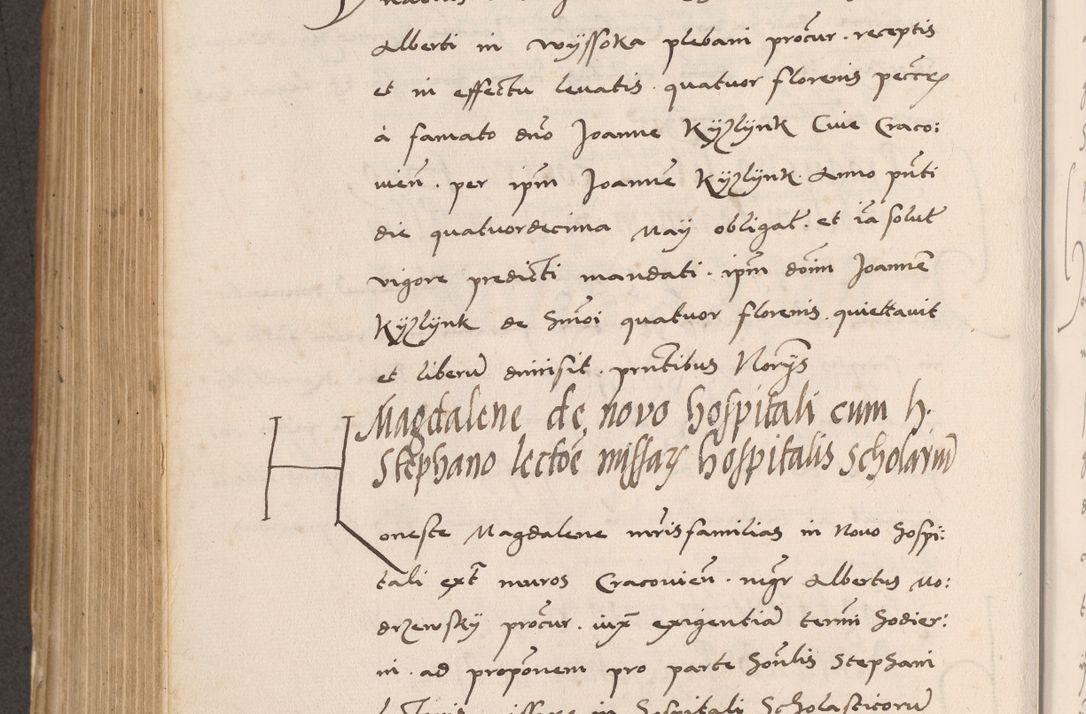 Alberti in Wyssoka plebani procur. receptis
et in effectu levatis. quatuor florenis pecc
à famato dno Joanne Kyzlynk Cive Craco:
vien. per ipm Joanne Kyzlynk. Anno pnti
die quatuordecima May obligat. et ia solut
vigore predicti mandati. ipm dom Joanne
Kyzlynk de hmoi quatuor florenis. quiettavit
et liberu dimisit. pntibus Norys
Magdalene de novo hospitali cum h.
Stephano lectore missar hospitalis scholarium
Honeste Magdalene mrisfamilias in Novo hospi:
tali ext muros Cracovien. mgr Albertus No:
drzewsky procur. iux exigentia termi hodier:
ni. ad proponem pro parte honlis Stephani
missar in hospitali Scholasticoru